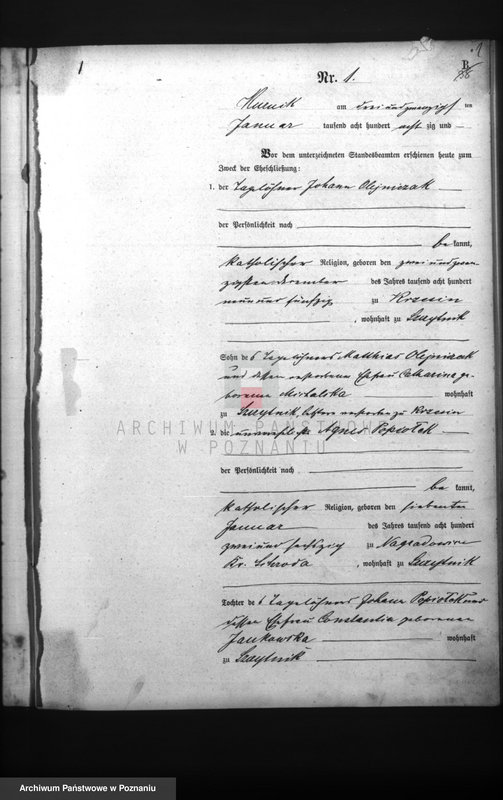 1
1
B
Nr. 1.
Kurnik am drei und zwanzigsten
Januar tausend acht hundert acht zig und
Vor dem unterzeichneten Standesbeamten erschienen heute zum
Zweck der Eheschließung:
1. der Tagelöhner Johann Olejniczak
der Persönlichkeit nach
be kannt,
katholischer Religion, geboren den zwei und zwan-
zigsten Dezember des Jahres tausend acht hundert
neun und fünfzig zu Krzesin
, wohnhaft zu Szczytnik
Sohn des Tagelöhners Matthias Olejniczak
und dessen verstorbene Ehefrau Catharina ge-
borene wohnhaft
zu Szczytnik, letztere verstorben zu Krzesin
ARCHIWUM PAŃSTWOWE
W POZNANIU
2. die unverehelichte Agnes Popiołek
der Persönlichkeit nach
be kannt,
katholischer Religion, geboren den siebenten
Januar des Jahres tausend acht hundert
zwei und sechszig zu Nagradowice
Kr. Schroda , wohnhaft zu Szczytnik
Tochter des Tagelöhners Johann Popiołek und
dessen Ehefrau Constantia geborene
Jankowska wohnhaft
zu Szczytnik
Archiwum Państwowe w Poznaniu